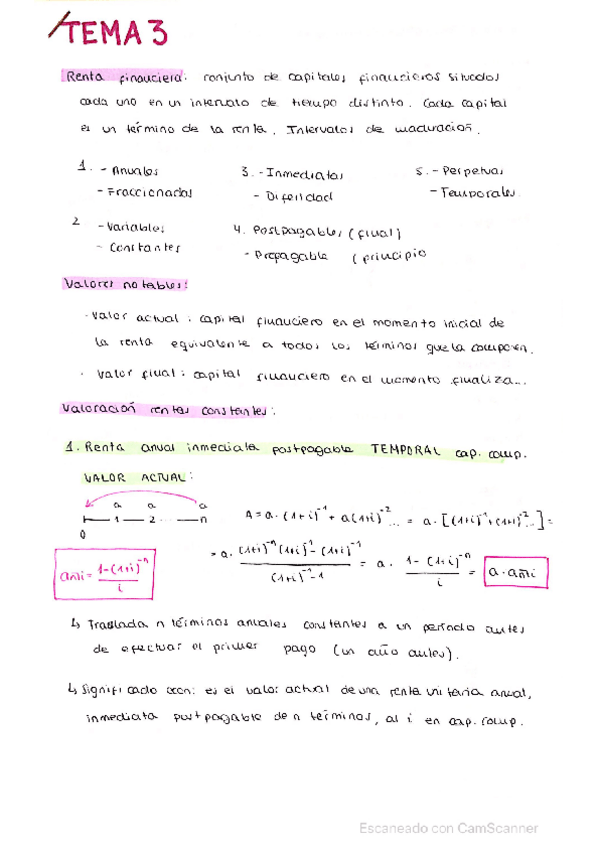 TEMA 3
Renta financiera: conjunto de capitales financieros situados
cada uno en un intervalo de tiempo distinto. Cada capital
es un término de la renta. Intervalos de maduración.
1. - Anuales
- Fraccionadas
3. - Inmediatas
- Diferidad
5. - Perpetuas
- Temporales
2 - Variables
- Constantes
4. Postpagables (final)
- Prepagable (principio
Valores notables:
· Valor actual: capital financiero en el momento inicial de
la renta equivalente a todos los términos que la componen.
· Valor final: capital financiero en el momento finaliza...
Valoración rentas constantes:
1. Renta anual inmediata postpagable TEMPORAL cap. comp.
VALOR ACTUAL:
a a a
1 2 ... n
0
A = a·(1+i)⁻¹ + a(1+i)⁻² ... = a·[(1+i)⁻¹+(1+i)⁻²...] =
= a· (1+i)⁻ⁿ(1+i)⁻¹-(1+i)⁻¹ / (1+i)⁻¹-1 = a· 1-(1+i)⁻ⁿ / i = a·an̄i
an̄i = 1-(1+i)⁻ⁿ / i
↳ Traslada n términos anuales constantes a un período antes
de efectuar el primer pago (un año antes).
↳ Significado econ: es el valor actual de una renta unitaria anual,
inmediata postpagable de n términos, al i en cap. comp.
Escaneado con CamScanner